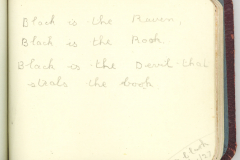 Black is the Raven,
Black is the Rook
Black is the Devil that
steals the book